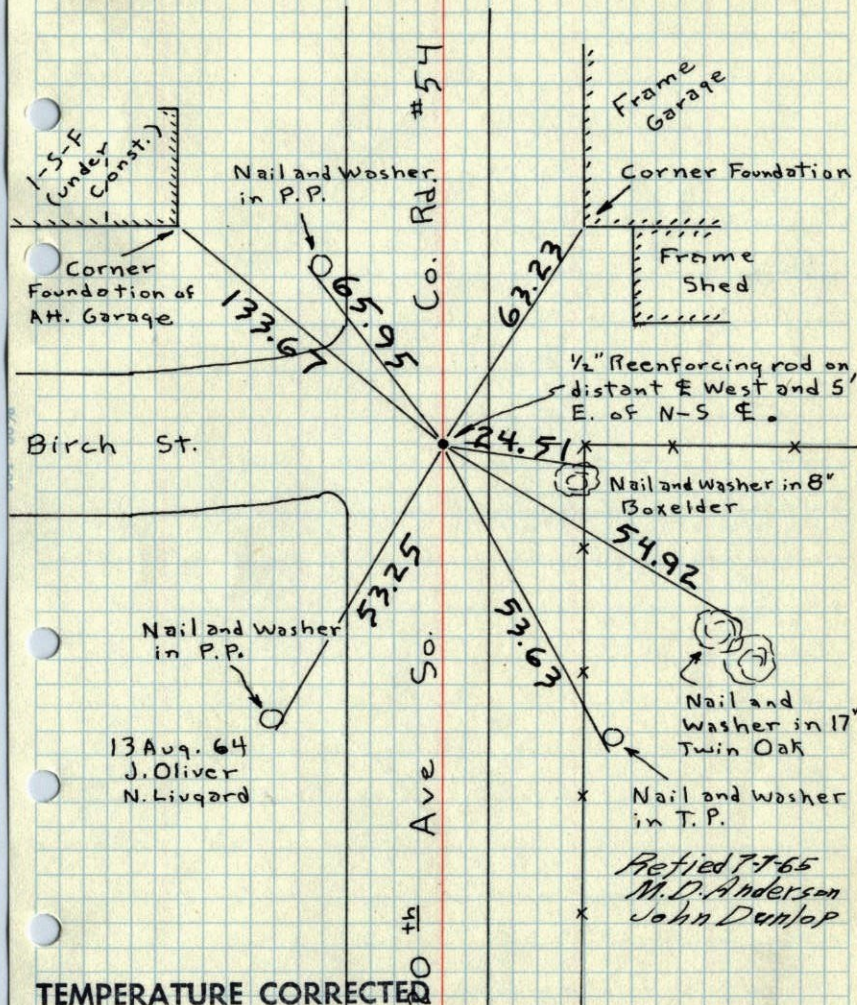 Co. Rd. #54
1-S-F
(under
Const.)
Frame
Garage
Nail and Washer
in P.P.
Corner Foundation
Corner
Foundation of
Att. Garage
Frame
Shed
133.67
65.95
63.23
1/2" Reenforcing rod on
distant ℄ West and 5'
E. of N-S ℄.
Birch St.
24.51
Nail and Washer in 8"
Boxelder
53.25
53.63
54.92
Nail and Washer
in P.P.
Nail and
Washer in 17"
Twin Oak
13 Aug. 64
J. Oliver
N. Livgard
Nail and Washer
in T.P.
Retied 7-7-65
M.D. Anderson
John Dunlop
20th Ave So.
TEMPERATURE CORRECTED